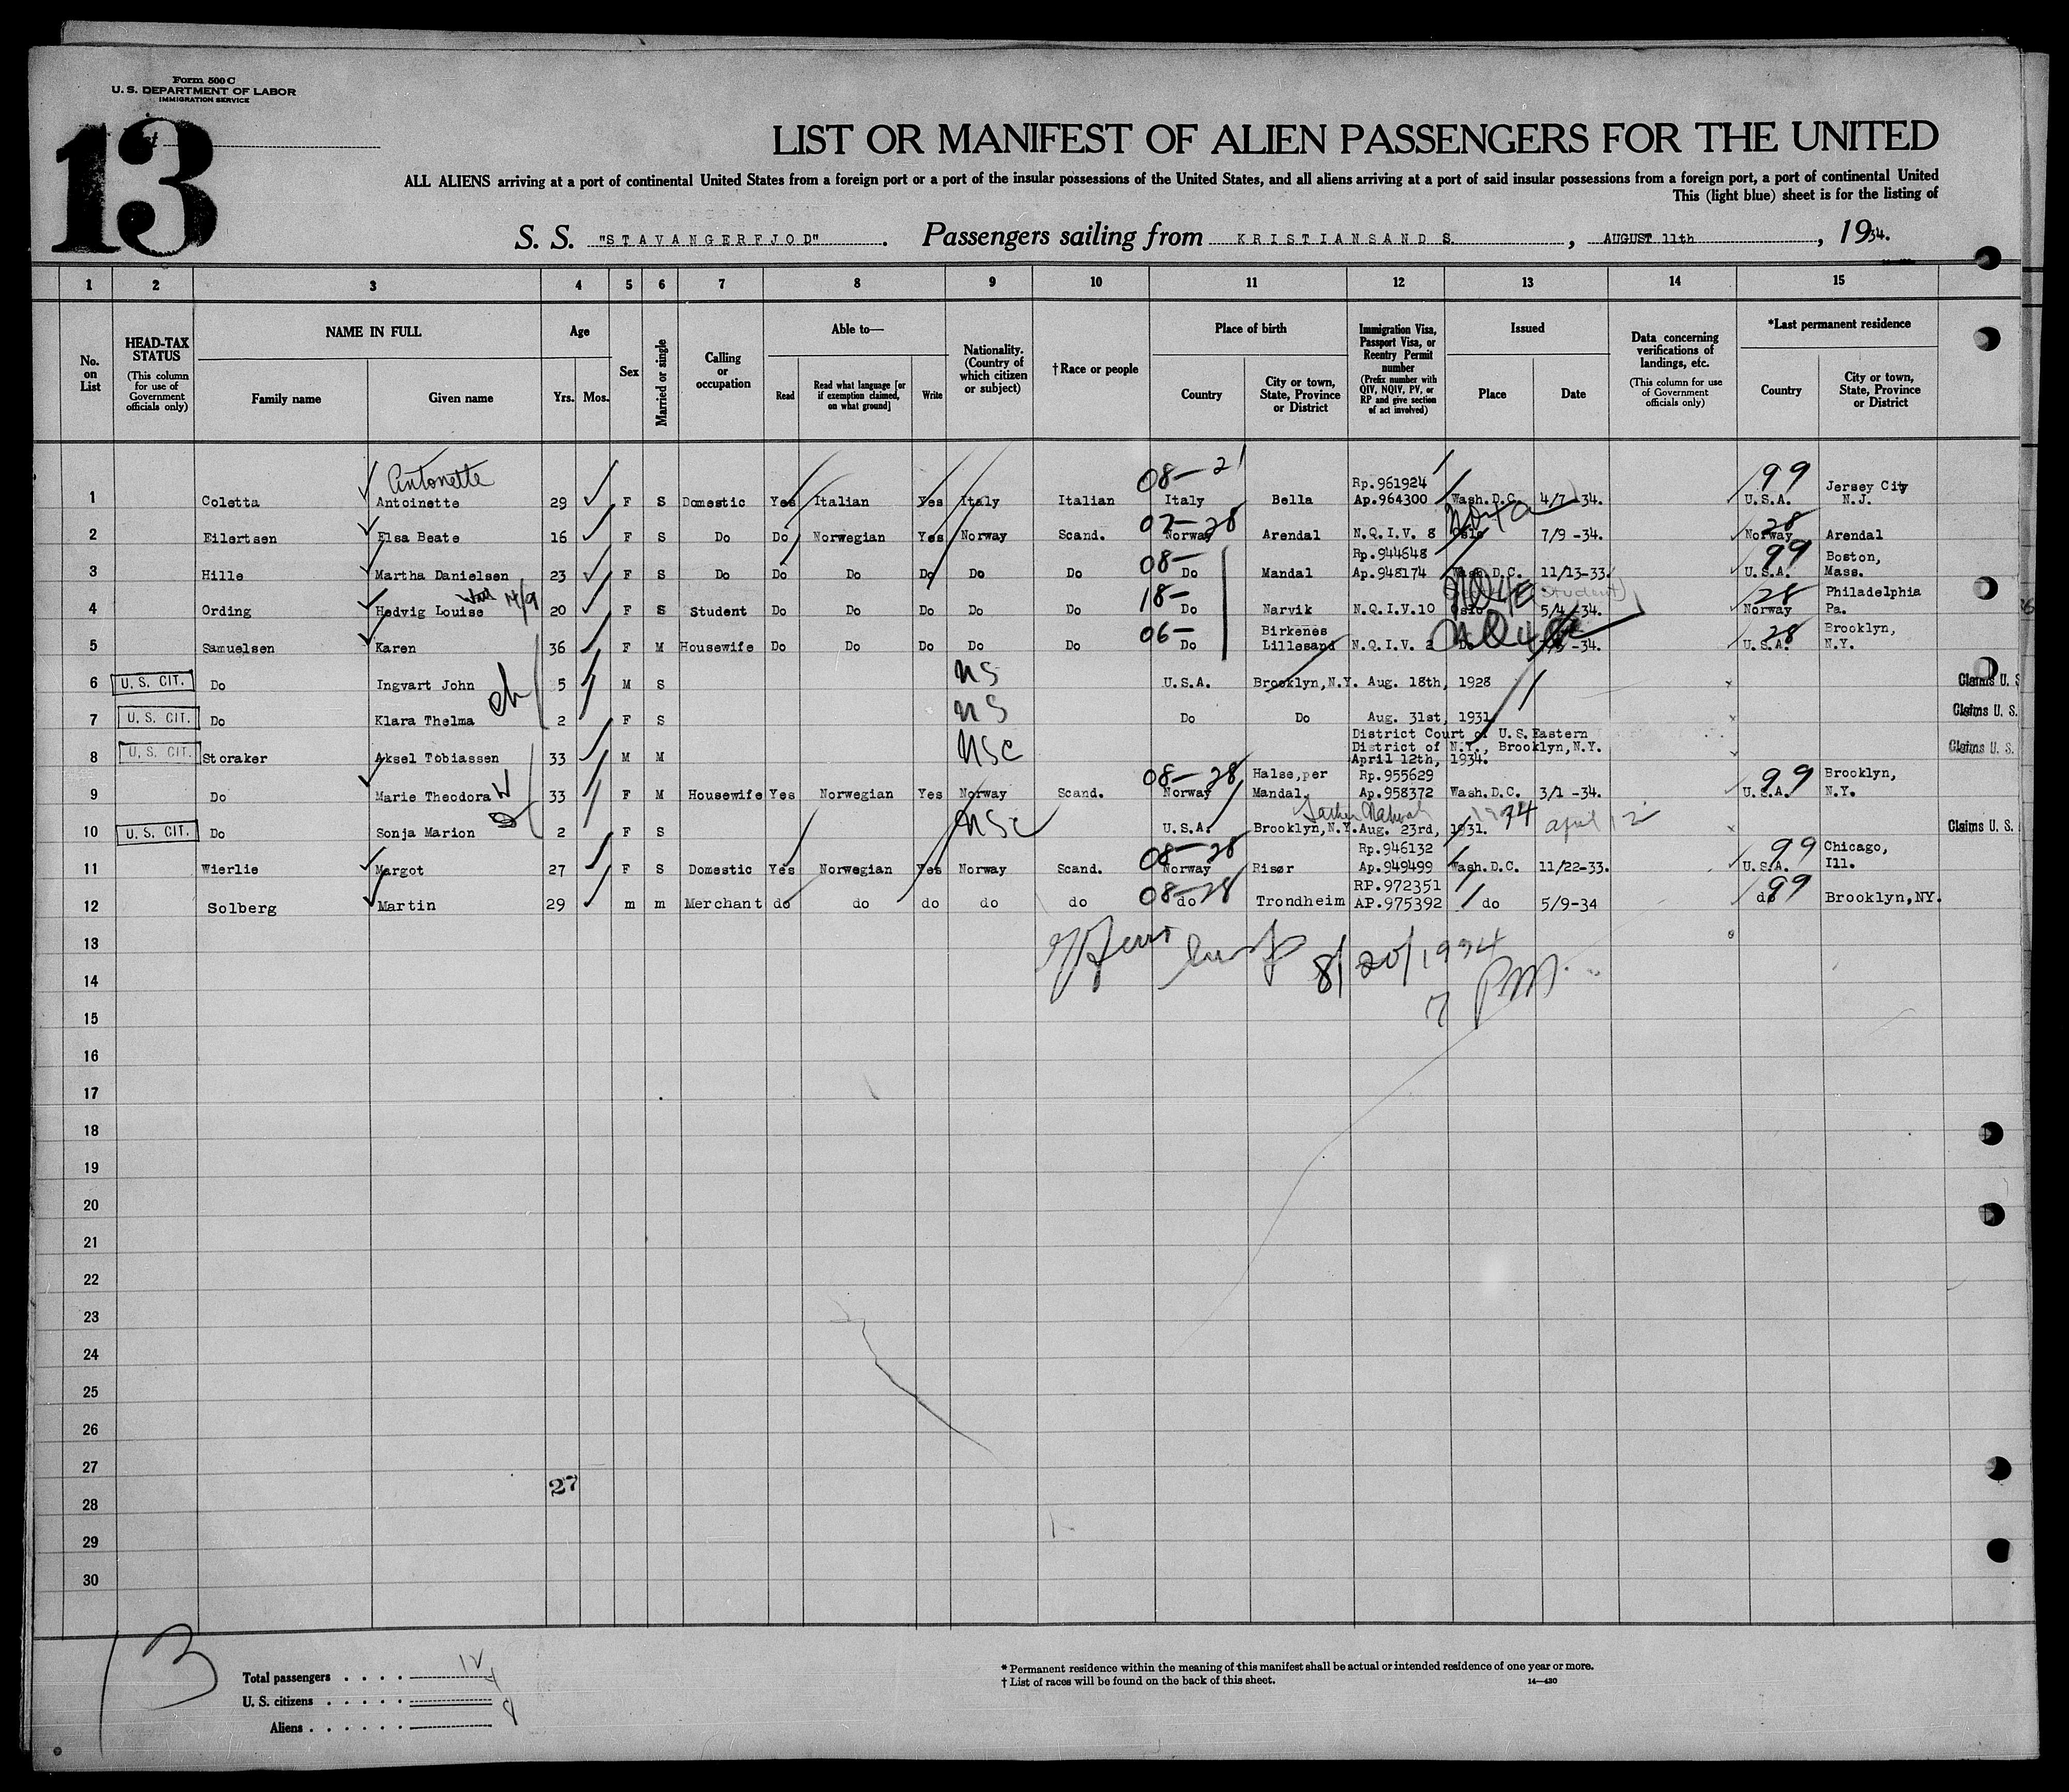 Form 500 C
U. S. DEPARTMENT OF LABOR
IMMIGRATION SERVICE
13
LIST OR MANIFEST OF ALIEN PASSENGERS FOR THE UNITED
ALL ALIENS arriving at a port of continental United States from a foreign port or a port of the insular possessions of the United States, and all aliens arriving at a port of said insular possessions from a foreign port, a port of continental United
This (light blue) sheet is for the listing of
S. S. "STAVANGERFJOD". Passengers sailing from KRISTIANSAND S. , AUGUST 11th , 1934.
1 2 3 4 5 6 7 8 9 10 11 12 13 14 15
No. on List
HEAD-TAX STATUS (This column for use of Government officials only)
NAME IN FULL Family name Given name
Age Yrs. Mos.
Sex
Married or single
Calling or occupation
Able to— Read Read what language [or if exemption claimed, on what ground] Write
Nationality. (Country of which citizen or subject)
† Race or people
Place of birth Country City or town, State, Province or District
Immigration Visa, Passport Visa, or Reentry Permit number (Prefix number with QIV, NQIV, PV, or RP and give section of act involved)
Issued Place Date
Data concerning verifications of landings, etc. (This column for use of Government officials only)
*Last permanent residence Country City or town, State, Province or District
Antonette 08-21 Rp.961924 99 Jersey City
1 Coletta Antoinette 29 F S Domestic Yes Italian Yes Italy Italian Italy Bella Ap.964300 Wash.D.C. 4/7 -34. U.S.A. N.J.
07-28 28
2 Eilertsen Elsa Beate 16 F S Do Do Norwegian Yes Norway Scand. Norway Arendal N.Q.I.V. 8 Oslo 7/9 -34. Norway Arendal
08- Rp.944648 99 Boston,
3 Hille Martha Danielsen 23 F S Do Do Do Do Do Do Do Mandal Ap.948174 Wash.D.C. 11/13-33. U.S.A. Mass.
18- (Student) 28 Philadelphia
4 Ording Hedvig Louise 20 F S Student Do Do Do Do Do Do Narvik N.Q.I.V.10 Oslo 5/4 -34. Norway Pa.
06- Birkenes 28 Brooklyn,
5 Samuelsen Karen 36 F M Housewife Do Do Do Do Do Do Lillesand N.Q.I.V. 2 Do -34. U.S.A. N.Y.
6 U. S. CIT. Do Ingvart John 5 M S NS U.S.A. Brooklyn,N.Y. Aug. 18th, 1928 x Claims U. S
ch
7 U. S. CIT. Do Klara Thelma 2 F S NS Do Do Aug. 31st, 1931 x Claims U. S.
District Court of U.S.Eastern
District of N.Y., Brooklyn,N.Y.
8 U. S. CIT. Storaker Aksel Tobiassen 33 M M NSC April 12th, 1934. Claims U. S.
08-28 Halse,per Rp.955629 99 Brooklyn,
9 Do Marie Theodora W 33 F M Housewife Yes Norwegian Yes Norway Scand. Norway Mandal. Ap.958372 Wash.D.C. 3/1 -34. U.S.A. N.Y.
1934 april 12
10 U. S. CIT. Do Sonja Marion 2 F S NSC U.S.A. Brooklyn,N.Y. Aug. 23rd, 1931. x Claims U. S.
08-28 Rp.946132 99 Chicago,
11 Wierlie Margot 27 F S Domestic Yes Norwegian Yes Norway Scand. Norway Risør Ap.949499 Wash.D.C. 11/22-33. U.S.A. Ill.
08-28 RP.972351 99
12 Solberg Martin 29 m m Merchant do do do do do do Trondheim AP.975392 do 5/9-34 do Brooklyn,NY.
13
8/20/1934
14
PM.
15
16
17
18
19
20
21
22
23
24
25
26
27
27
28
29
30
13
Total passengers . . . . 12
U. S. citizens . . . . . 4
Aliens . . . . . . 8
* Permanent residence within the meaning of this manifest shall be actual or intended residence of one year or more.
† List of races will be found on the back of this sheet. 14—430